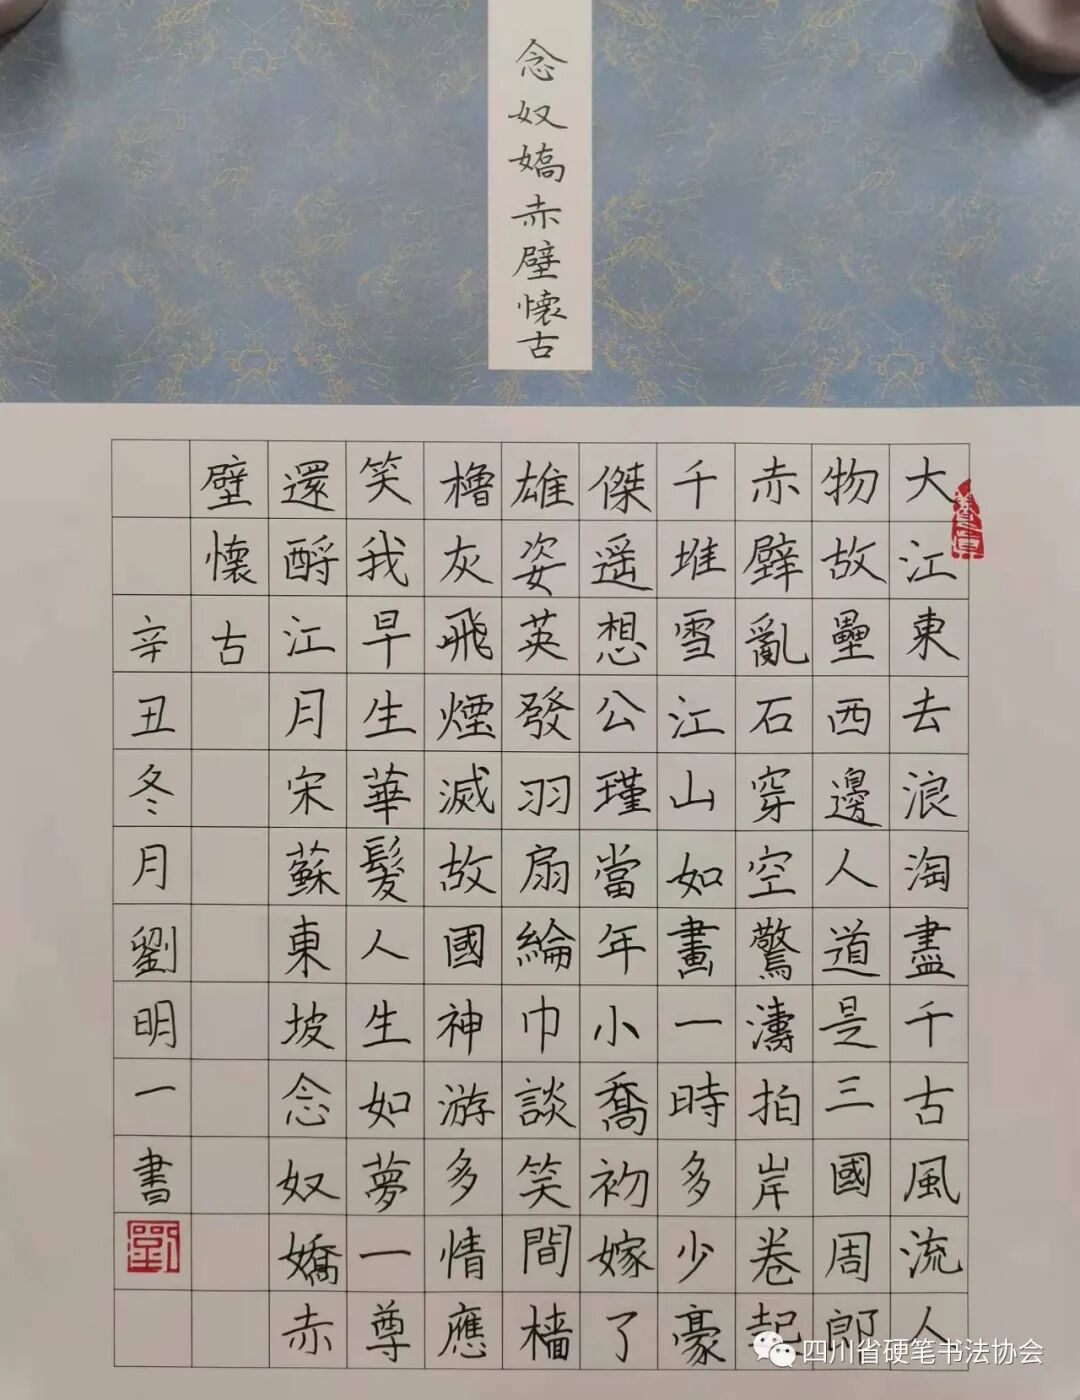 念奴嬌赤壁懷古
大江東去浪淘盡千古風流人
物故壘西邊人道是三國周郎
赤壁亂石穿空驚濤拍岸卷起
千堆雪江山如畫一時多少豪
傑遥想公瑾當年小喬初嫁了
雄姿英發羽扇綸巾談笑間檣
櫓灰飛煙滅故國神游多情應
笑我早生華髮人生如夢一尊
還酹江月宋蘇東坡念奴嬌赤
壁懷古
辛丑冬月劉明一書
四川省硬笔书法协会